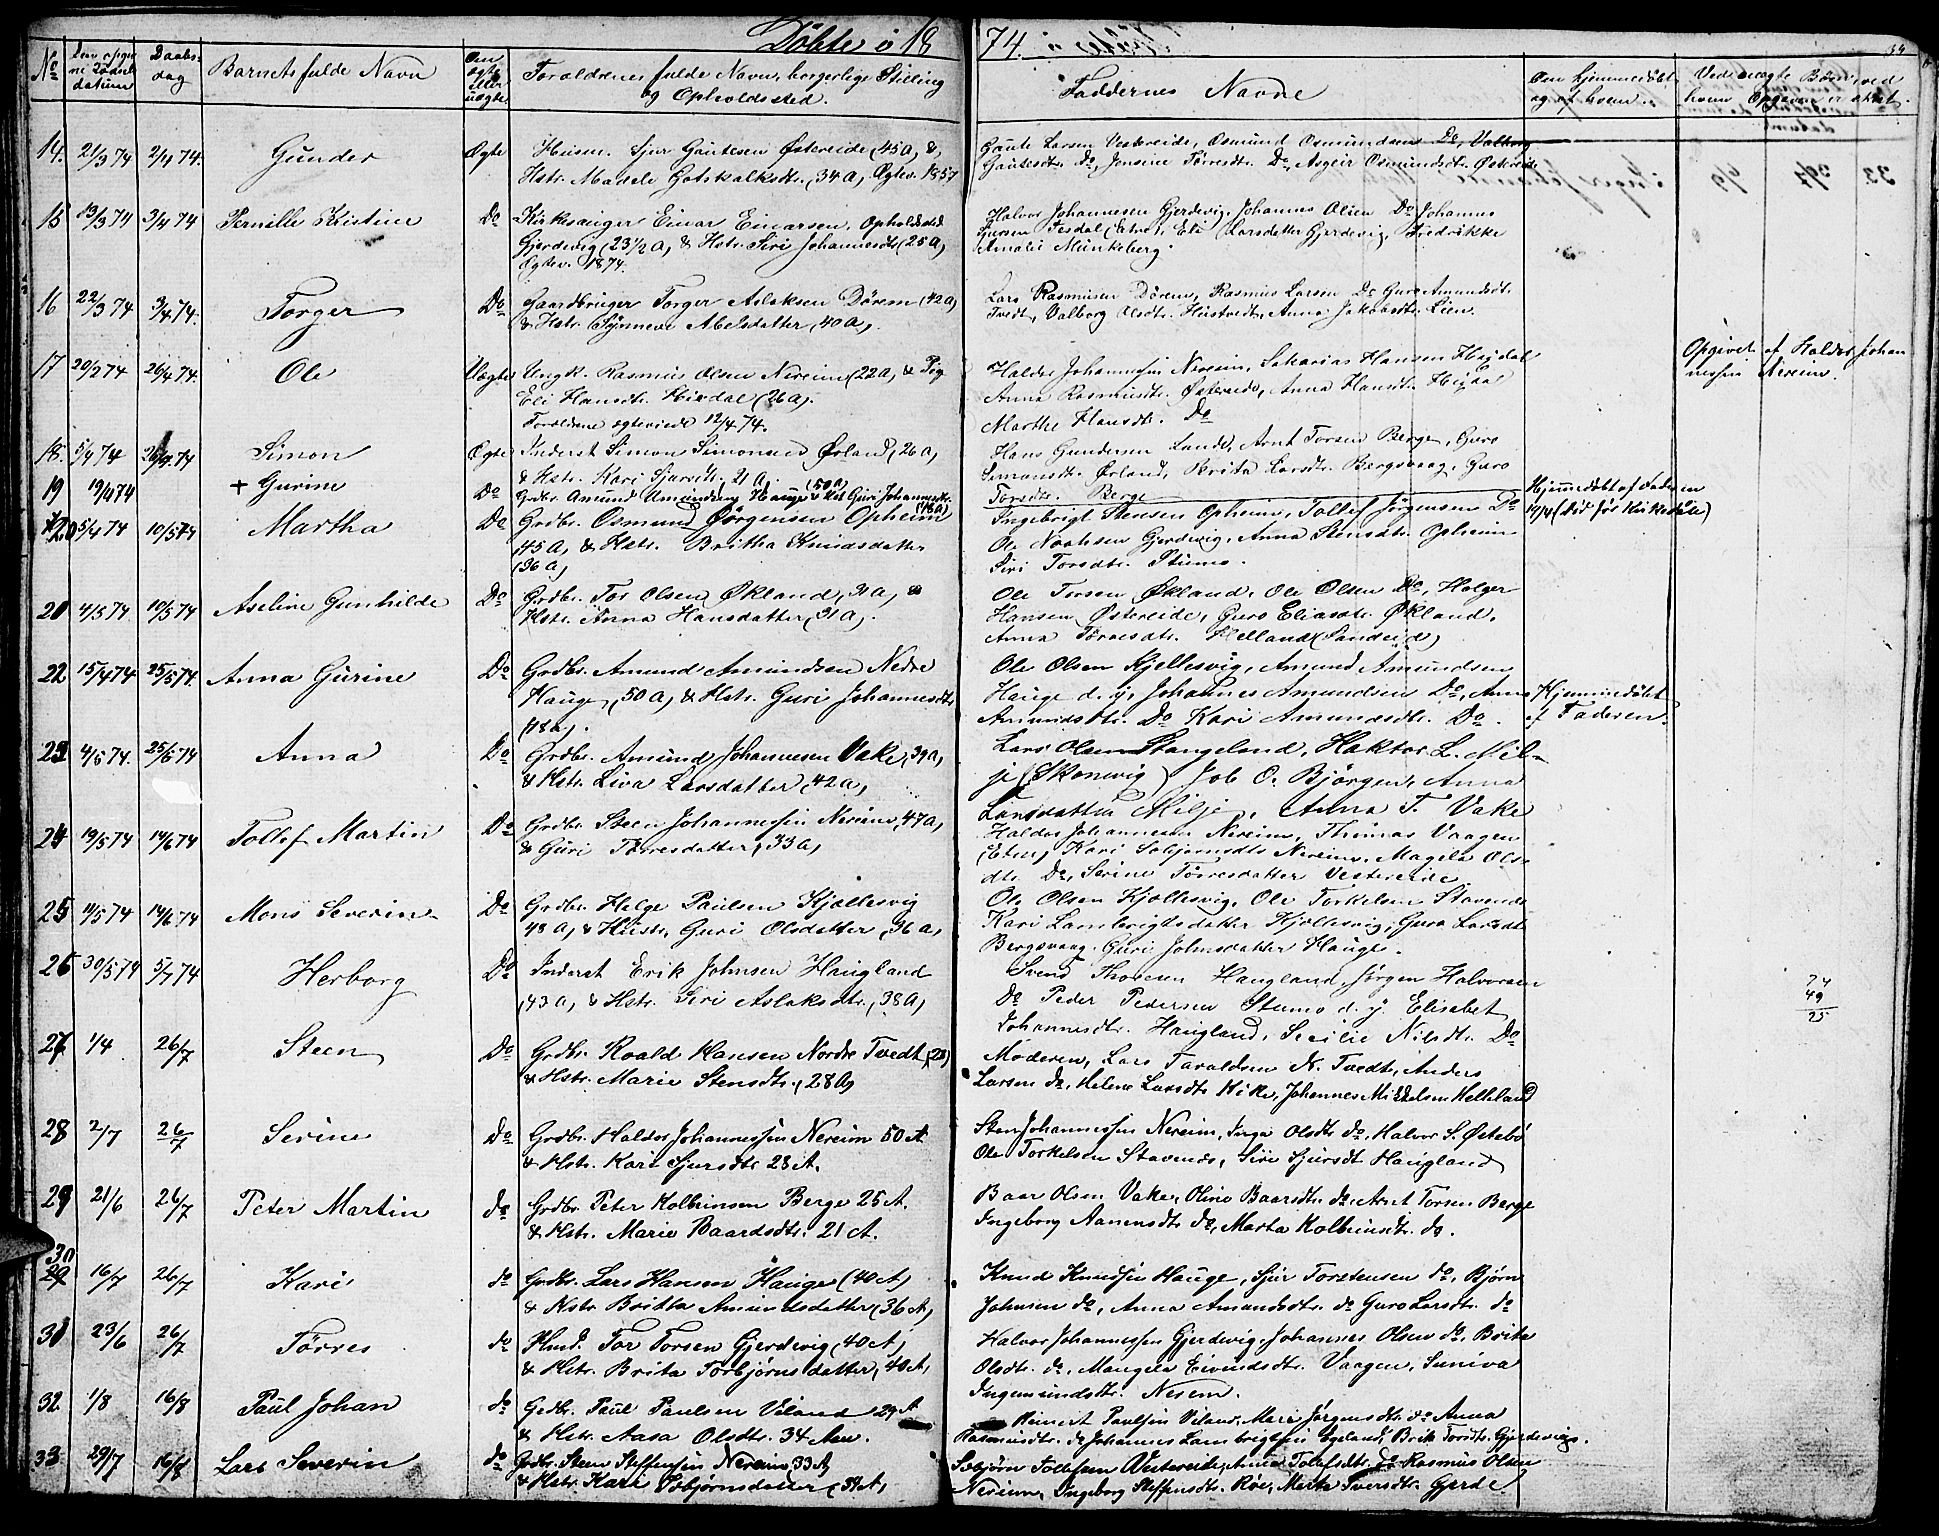 Döbte i 1874.
No
Daabsdag
Barnets fulde Navn
Om ægte eller uægte
Forældrenes fulde Navn, borgerlige Stilling og Opholdssted.
Faddernes Navne
Om hjemmedöbt og af hvem.
Ved uægte Börn, ved hvem Opgaven er sket.
14. 21/3 74 2/4 74. Gunder Ægte Husm. Sjur Gautesen Östereide (45 A) &
Hstr. Madele Gotskalksdtr. (34 A) Ægtev. 1857
Gaute Larsen Vestereide, Osmund Osmundsen Do, Valborg
Gautesdtr. Do, Jensine Törresdtr. Do, Asgeir Osmundsdtr. Östereide
15 13/3 74 3/4 74 Pernille Kristine Do Kirkesanger Einar Einarsen, Opholdssted
Gjerdevig (23 1/2 A) & Hstr. Siri Johannesdtr. (25 A)
Ægtev. 1874.
Halvor Johannesen Gjerdevig, Johannes Olsen Do Johannes
Sjursen Tesdal (Etne), Eli Larsdatter Gjerdevig, Fredrikke
Amalie Munkeberg.
16 22/3 74 3/4 74. Torger Do Gaardbruger Torger Aslaksen Dörem (42 A)
& Hstr. Synneve Abelsdatter (40 A).
Lars Rasmusen Dörem, Rasmus Larsen Do Guro Amundsdt.
Tvedt, Valborg Olsdtr. Hustvedt, Anna Jakobsdtr. Lien.
17 20/2 74 26/4 74. Ole Uægte Ungk. Rasmus Olsen Nereim (22 A) & Pig.
Eli Hansdtr. Höidal (26 A).
Foreldrene egteviede 12/4 74.
Haldor Johannessen Nereim, Sakarias Hansen Höjdal
Anna Rasmusdtr. Östereide, Anna Hansdt. Höjdal
Marthe Hansdtr. Do
Opgivet af Haldor Johannessen Nereim.
18. 5/4 74 26/4 74 Simon Ægte Inderst Simon Simonsen Ørland (26 A)
& Hstr. Kari Sjursdtr. 21 A.
Hans Gundersen Lunde, Arnt Torsen Berge, Guro
Simonsdtr. Ørland, Brita Larsdtr. Bergsvaag, Guro
Torsdtr. Berge
19 19/4 74 + Gurine Do Grdbr. Amund Amundsen Hauge (50 A) & Hst. Guri Johannesdtr. (18 A)
Hjemmedöbt af Faderen
19/4 (död för Kirkedaab)
20 5/4 74 10/5 74 Martha Do Grdbr. Osmund Jörgensen Opheim
(45 A) & Hstr. Britha Knudsdatter
(36 A)
Ingebrigt Stensen Opheim, Tollef Jörgensen Do
Ole Nachsen Gjerdevig, Anna Stensdtr. Opheim
Siri Torsdtr. Stumo.
20 4/5 74 10/5 74 Aseline Gunhilde Do Grdbr. Tor Olsen Økland (31 A) &
Hstr. Anna Hansdatter (31 A).
Ole Torsen Økland, Ole Olsen Do, Holger
Hansen Östereide, Guro Eliasdtr. Økland,
Anna Törresdtr. Helland (Sandeid)
22 15/4 74 25/5 74. Anna Gurine Do Grdbr. Amund Amundsen Nedre
Hauge (50 A) & Hstr. Guri Johannesdtr
(18 A).
Ole Olsen Kjellesvig, Amund Amundsen
Hauge d. y. Johannes Amundsen Do, Anna
Amundsdtr. Do Kari Amundsdtr. Do.
Hjemmedöbt
af Faderen.
23 4/5 74. 25/5 74 Anna Do Grdbr. Amund Johannesen Vake (39 A)
& Hstr. Liva Larsdatter (42 A)
Lars Olsen Stangeland, Haktor L. Mil-
je (Skonevig) Job O. Björgen, Anna
Larsdatter Milje, Anna T. Vake
24 19/5 74 14/6 74 Tollef Martin Do Grdbr. Steen Johannessen Nereim (47 A)
& Guri Törresdatter (33 A)
Haldor Johannesen Nereim, Thomas Vaagen
(Etne) Kari Sobjörnsdtr Nereim, Magela Ols-
dtr. Do, Serine Törresdatter Vestereide
25 11/5 74 14/6 74 Mons Severin Do Grdbr. Helge Paulsen Kjöllesvig
48 A) & Hustr. Guri Olsdatter (36 A)
Ole Olsen Kjöllesvig, Ole Torkelsen Stavenes
Kari Lambrigtsdatter Kjöllesvig, Guro Larsdt
Bergsvaag, Guri Johnsdatter Hauge.
26 30/5 74 5/7 74 Herborg Do Inderst Erik Johnsen Haugland
(43 A) & Hstr. Siri Aslaksdtr. (38 A)
Svend Thorsen Haugland, Jörgen Halvorsen
Do Peder Pedersen Stumo d. y. Elisabet
Johannesdtr. Haugland, Secilie Nilsdtr. Do
74
49
25
27 1/4 26/7 Steen Do Grdbr. Roald Hansen Nordre Tvedt (28)
& Hstr. Marie Stensdtr. (28 A)
Moderen, Lars Taraldsen N. Tvedt, Anders
Larsen do, Helene Larsdtr. Hike, Johannes Mikkelsen Helleland
28 2/7 26/7 Serine Do Grdbr. Haldor Johannessen Nereim 50 A
& Hstr. Kari Sjursdtr 28 A.
Sten Johannessen Nereim, Inga Olsdtr do, Halvor S. Östebö
Ole Torkelsen Stavenes, Siri Sjursdt Haugland
29 21/6 26/7 Peter Martin do Grdbr. Peter Kolbeinsen Berge 25 A.
& Hstr. Marie Baardsdtr. 21 A.
Baar Olsen Vake, Oline Baarsdtr. do, Arnt Torsen Berge
Ingeborg Aanensdtr do, Marta Kolbeinsdtr. do.
30
29 16/7 26/7 Kari do Grdbr. Lars Hansen Hauge (40 A)
& Hstr. Britta Amundsdatter (36 A)
Knud Knudsen Hauge, Sjur Torstensen do, Björn
Johnsen do, Anna Amundsdtr. do Guro Larsdtr. do
31 23/6 26/7 Törres do Husd. Tor Torsen Gjerdevig (40 A)
& Hstr. Brita Torbjörnsdatter (40 A)
Halvor Johannessen Gjerdevig, Johannes Olsen do, Brita
Olsdtr. do, Mangela Eivindsdtr. Vaagen, Suniva
Ingemundsdtr. Nesem.
32 1/8 16/8 Paul Johan do Grdbr. Paul Paulsen Viland 29 A
& Hstr. Aasa Olsdtr. 34 Aar.
Reinert Paulsen Viland, Mari Jörgensdtr. do Anna
Rasmusdtr. do Johannes Lambrigtsen Egeland, Brit Torsdtr. Gjerdevig.
33 29/7 16/8 Lars Severin do Grdbr. Steen Steffensen Nereim 33 A
& Hstr. Kari Sobjörnsdatter (31 A)
Sobjörn Tollefsen Vestereide, Anna Tollefsdtr. do Rasmus Olsen
Nereim, Ingeborg Steffensdtr. Röe, Marta Iversdtr. Gjerde